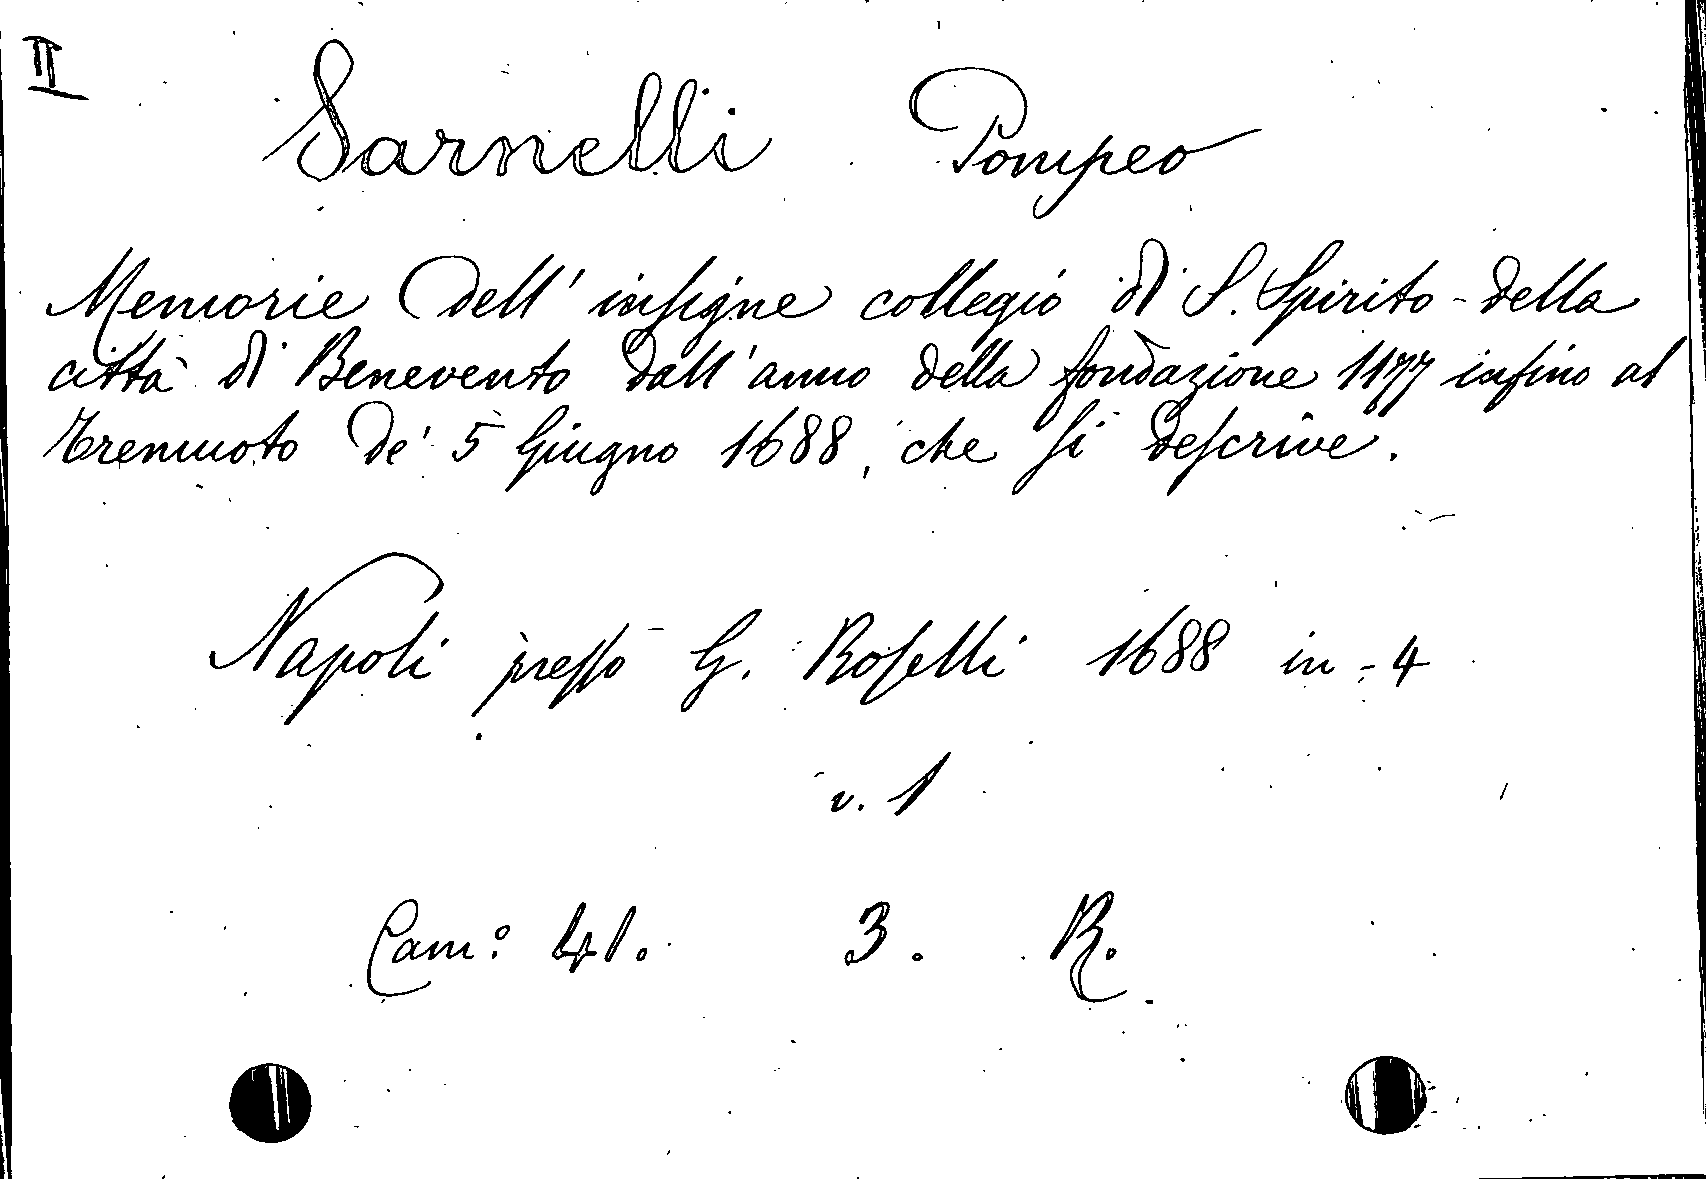 II
Sarnelli Pompeo
Memorie dell' insigne collegio di S. Spirito della
città di Benevento dall' anno della fondazione 1177 infino al
tremuoto de' 5 Giugno 1688, che si descrive.
Napoli presso G. Roselli 1688 in-4
v. 1
Camº 41. 3. R.